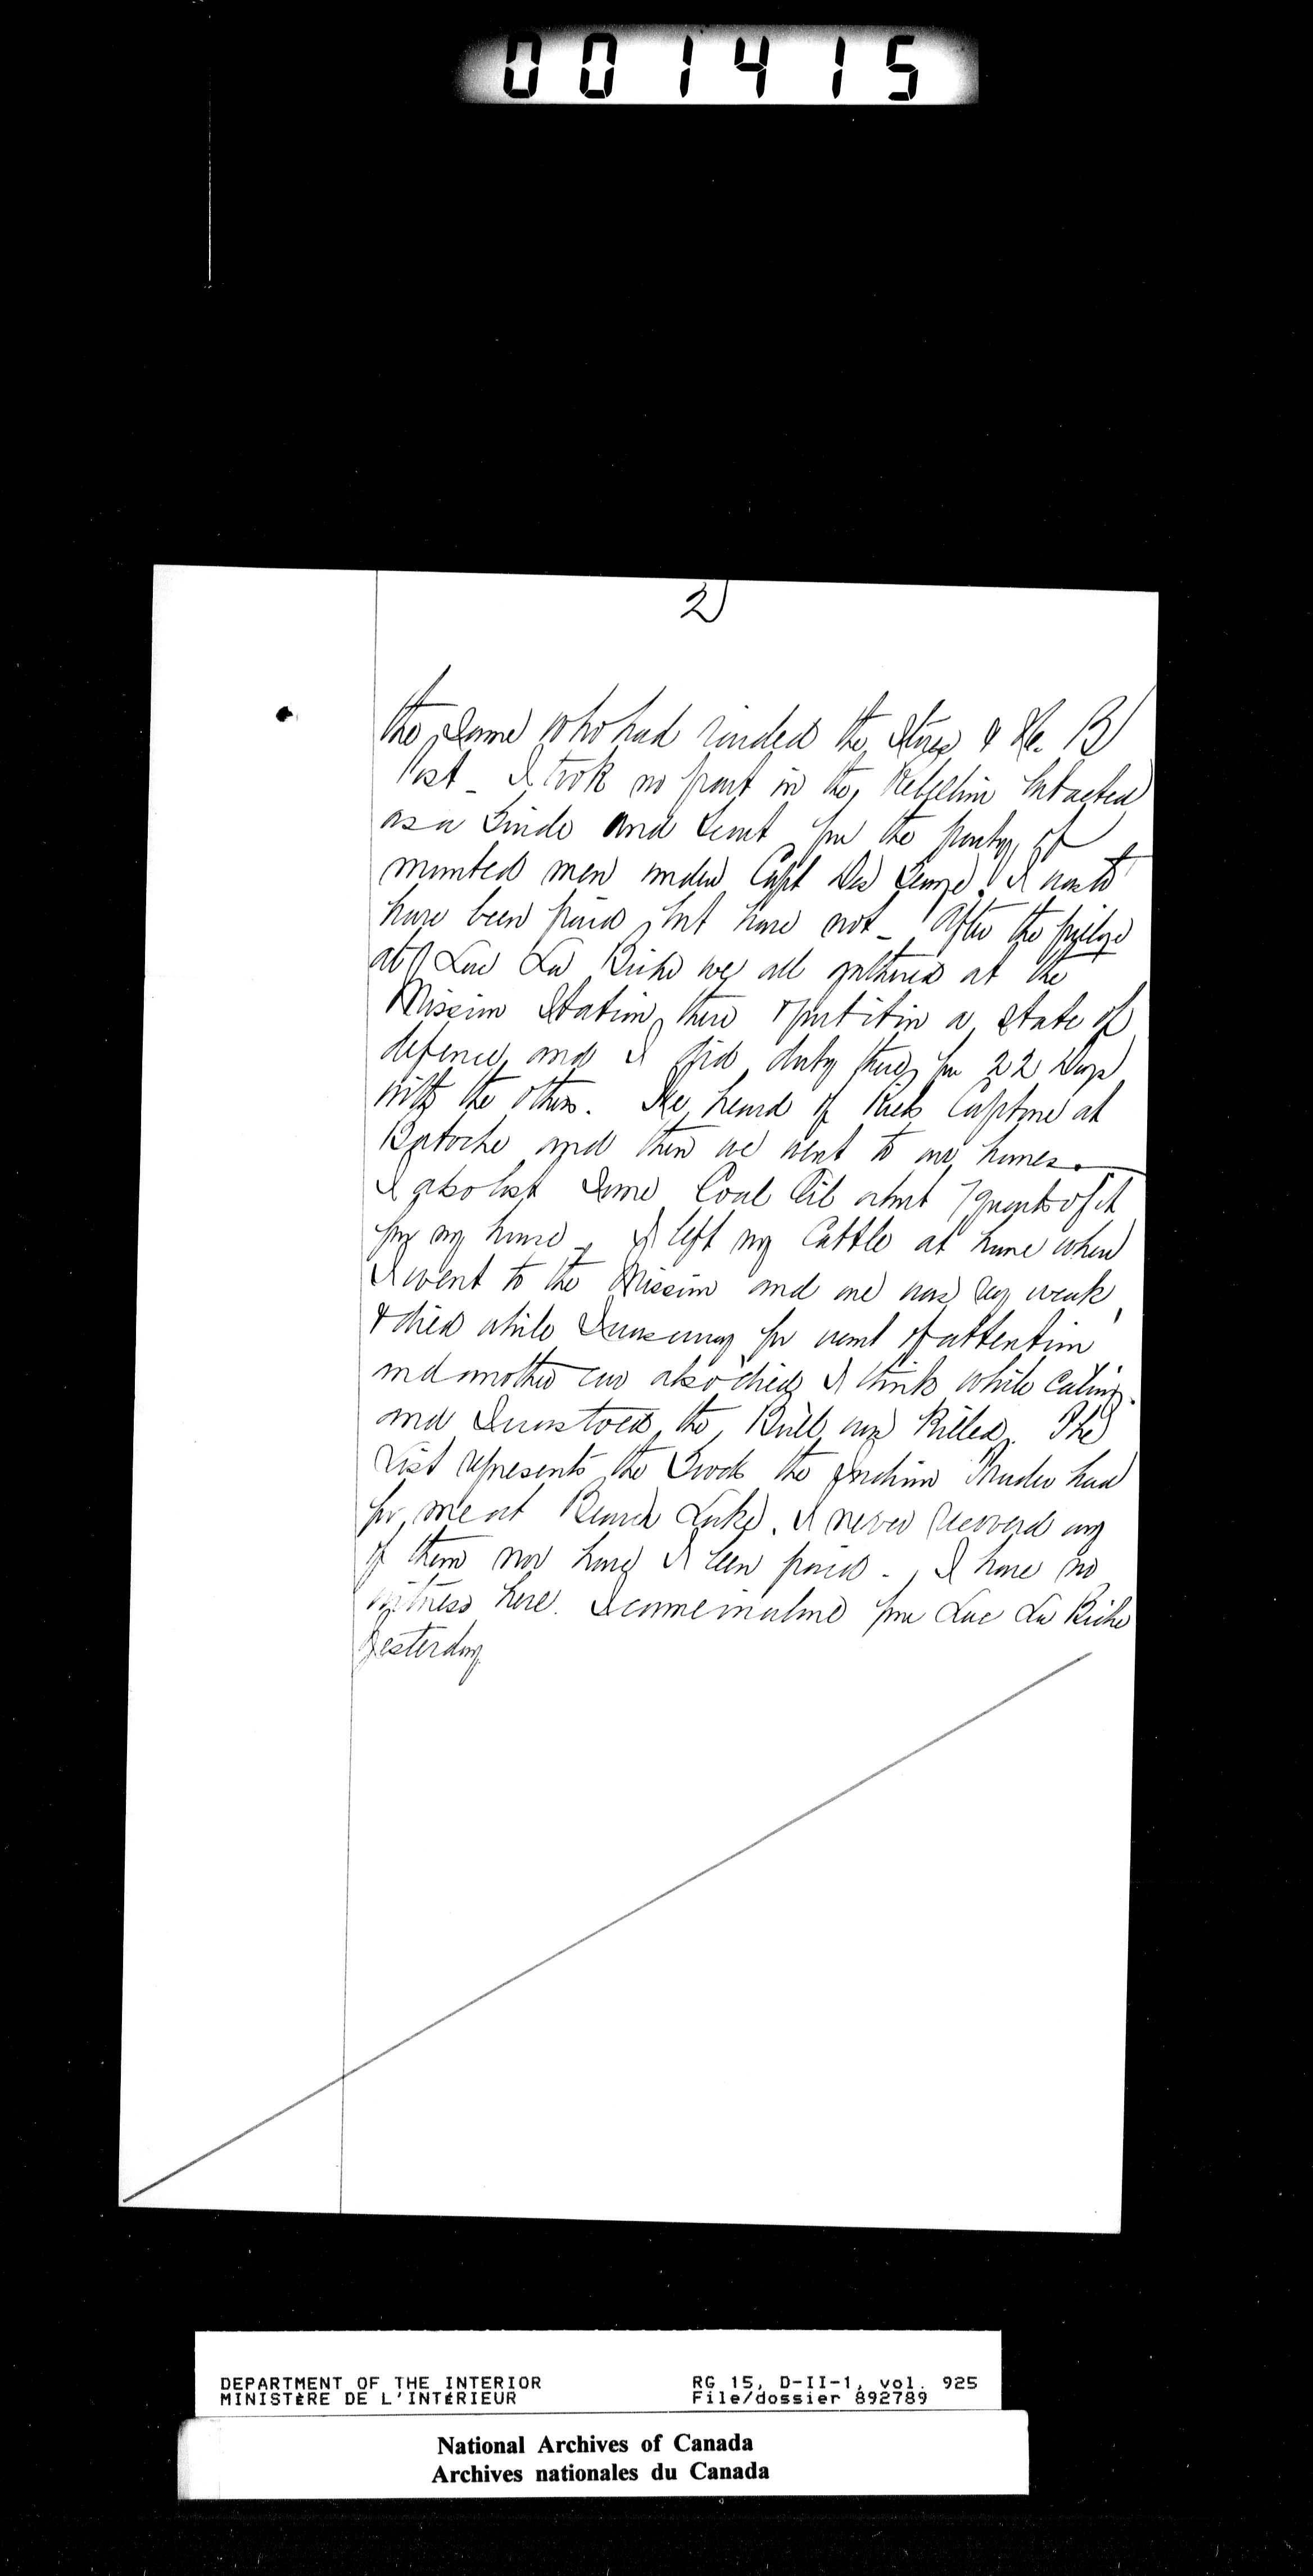 001415
2)
the same who had raided the Stores & H. B
Post _ I took no part in the Rebellion but acted
as a Guide and Scout for the party of
mounted men under Capt Des George. I was to
have been paid but have not _ After the pillage
at Lac La Biche we all gathered at the
Mission Station there & put it in a state of
defence and I did duty there for 22 Days
with the others. We heard of Riels Capture at
Batoche and then we went to our homes.
I also lost some Coal Oil about 7 quarts of it
from my house _ I left my Cattle at home when
I went to the Mission and one was very weak
& died while I was away for want of attention
and another cow also died I think while calving.
and I understood the Bull was killed. The
List represents the Goods the Indian Trader had
for me at Beaver Lake. I never recovered any
of them nor have I been paid - I have no
witness here. I came in alone from Lac La Biche
yesterday
DEPARTMENT OF THE INTERIOR
MINISTÈRE DE L'INTÉRIEUR
RG 15, D-II-1, vol. 925
File/dossier 892789
National Archives of Canada
Archives nationales du Canada